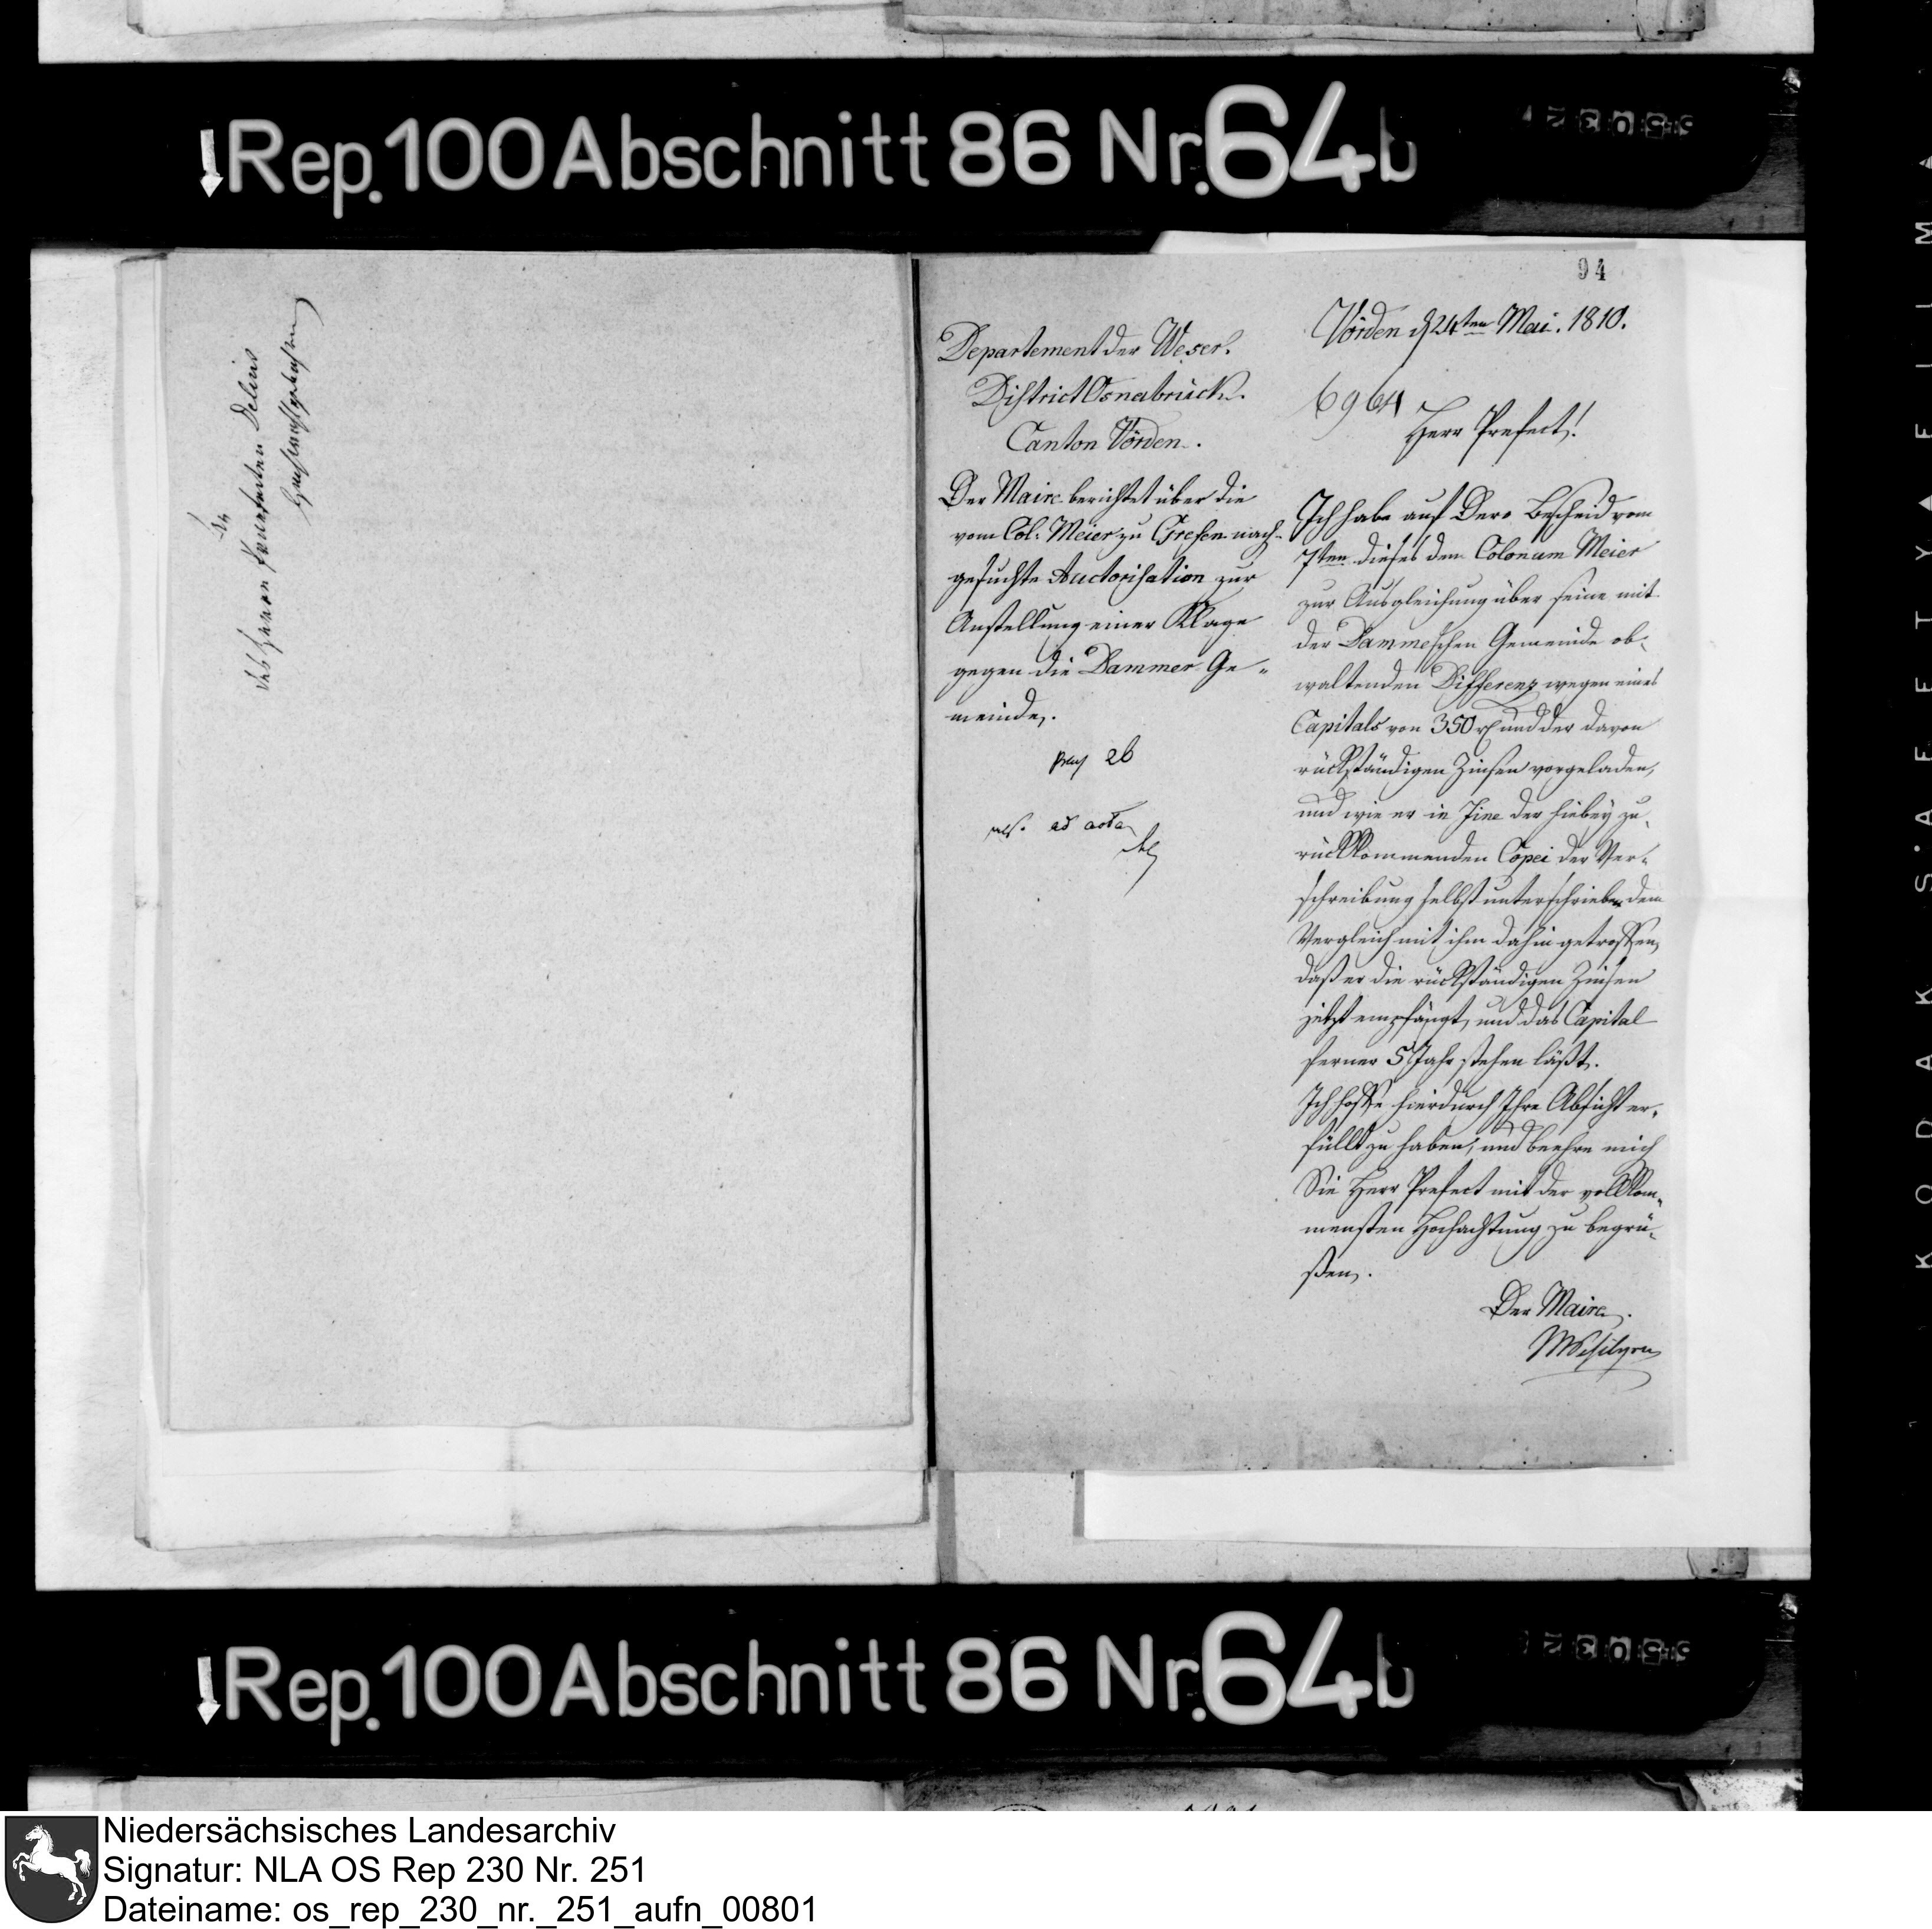 Rep. 100 Abschnitt 86 Nr. 64b
An
des Herrn Praefecten Delius
Hochwohlgebohren
94
Departement der Weser.
District Osnabrück.
Canton Vörden.
Der Maire berichtet über die
vom Col: Meier zu Greven nach-
gesuchte Auctorisation zur
Anstellung einer Klage
gegen die Dammer Ge-
meinde.
26
ad acta
Vörden d 24ten Mai. 1810.
6964
Herr Prefect!
Ich habe auf Dero Bescheid vom
7ten dieses den Colonum Meier
zur Ausgleichung über seine mit
der Dammeschen Gemeinde ob-
waltenden Differenz wegen eines
Capitals von 350 rt und der davon
rückständigen Zinsen vorgeladen,
und wie er in fine der hiebey zu-
rückkommenden Copei der Ver-
schreibung selbst unterschrieben den
Vergleich mit ihm dahin getroffen,
daß er die rückständigen Zinsen
jetzt empfängt, und das Capital
ferner 5 Jahr stehen läßt.
Ich hoffe hierdurch Ihre Absicht er-
füllt zu haben, und beehre mich
Sie Herr Prefect mit der vollkom-
mensten Hochachtung zu begrü-
ßen.
Der Maire.
Rep. 100 Abschnitt 86 Nr. 64b
KODAK SAFETY FILM
Niedersächsisches Landesarchiv
Signatur: NLA OS Rep 230 Nr. 251
Dateiname: os_rep_230_nr._251_aufn_00801